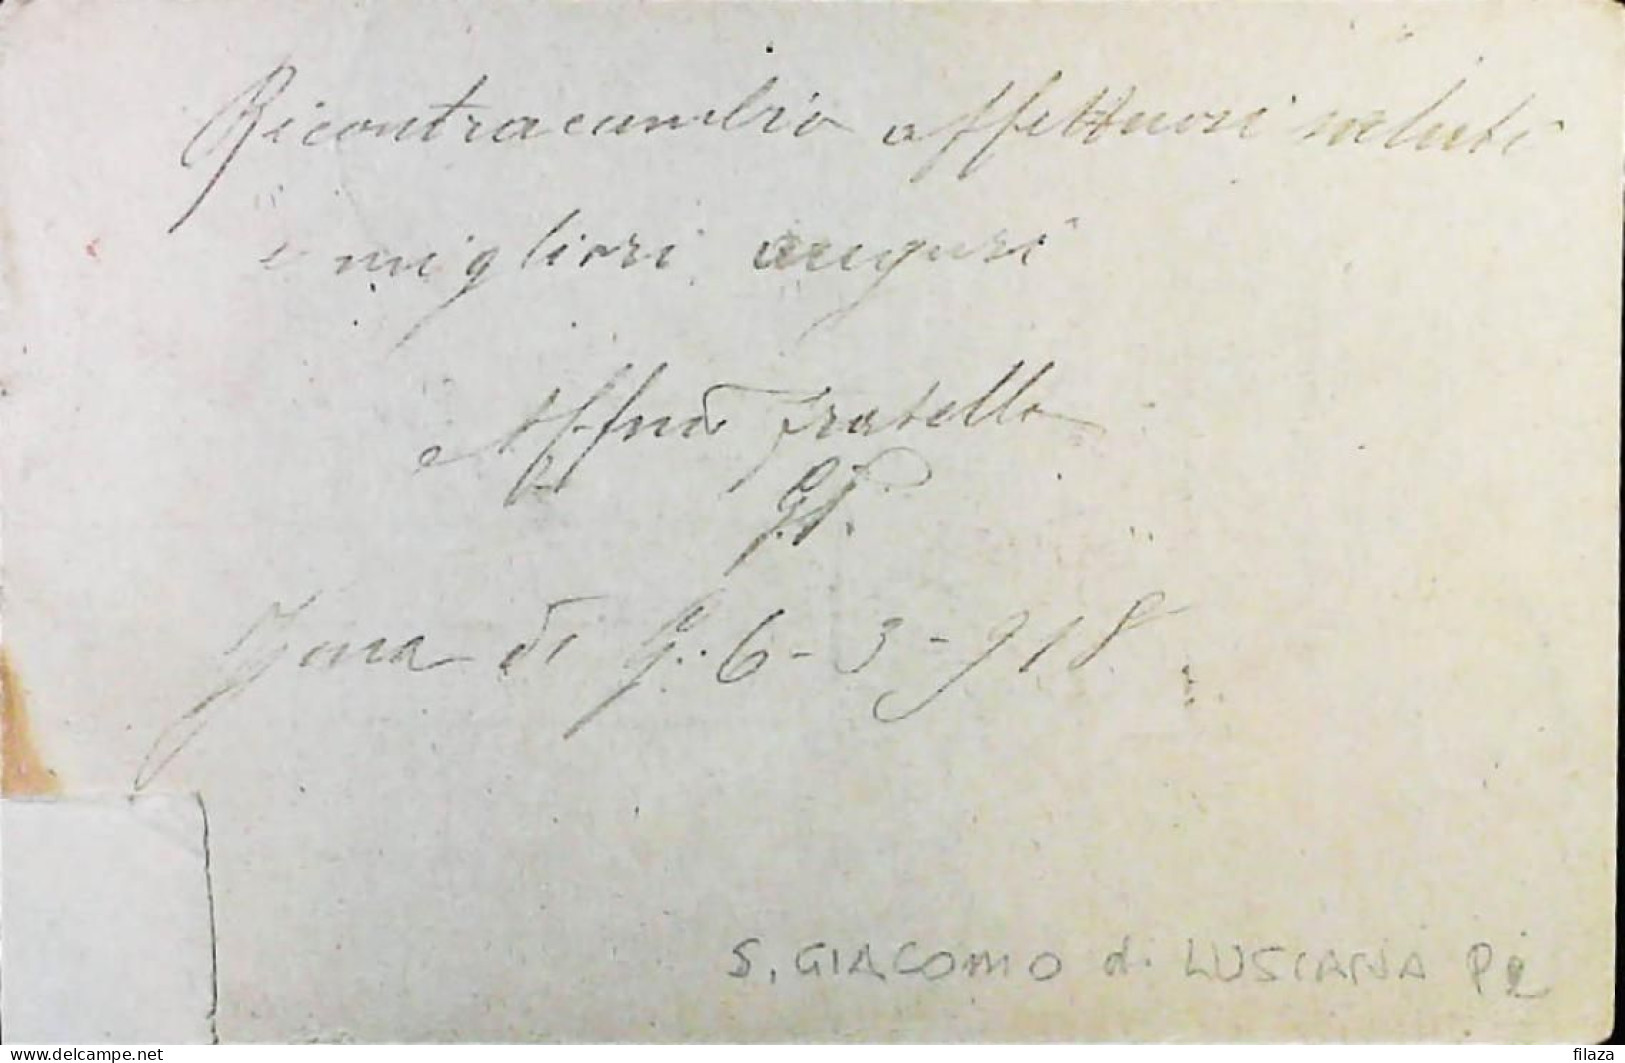 Ricontracambio affettuosi saluti
e migliori auguri
Affmo fratello
G.P.
Zona di G. 6-3-918
S. GIACOMO di LUSIANA P2
filaza
www.delcampe.net